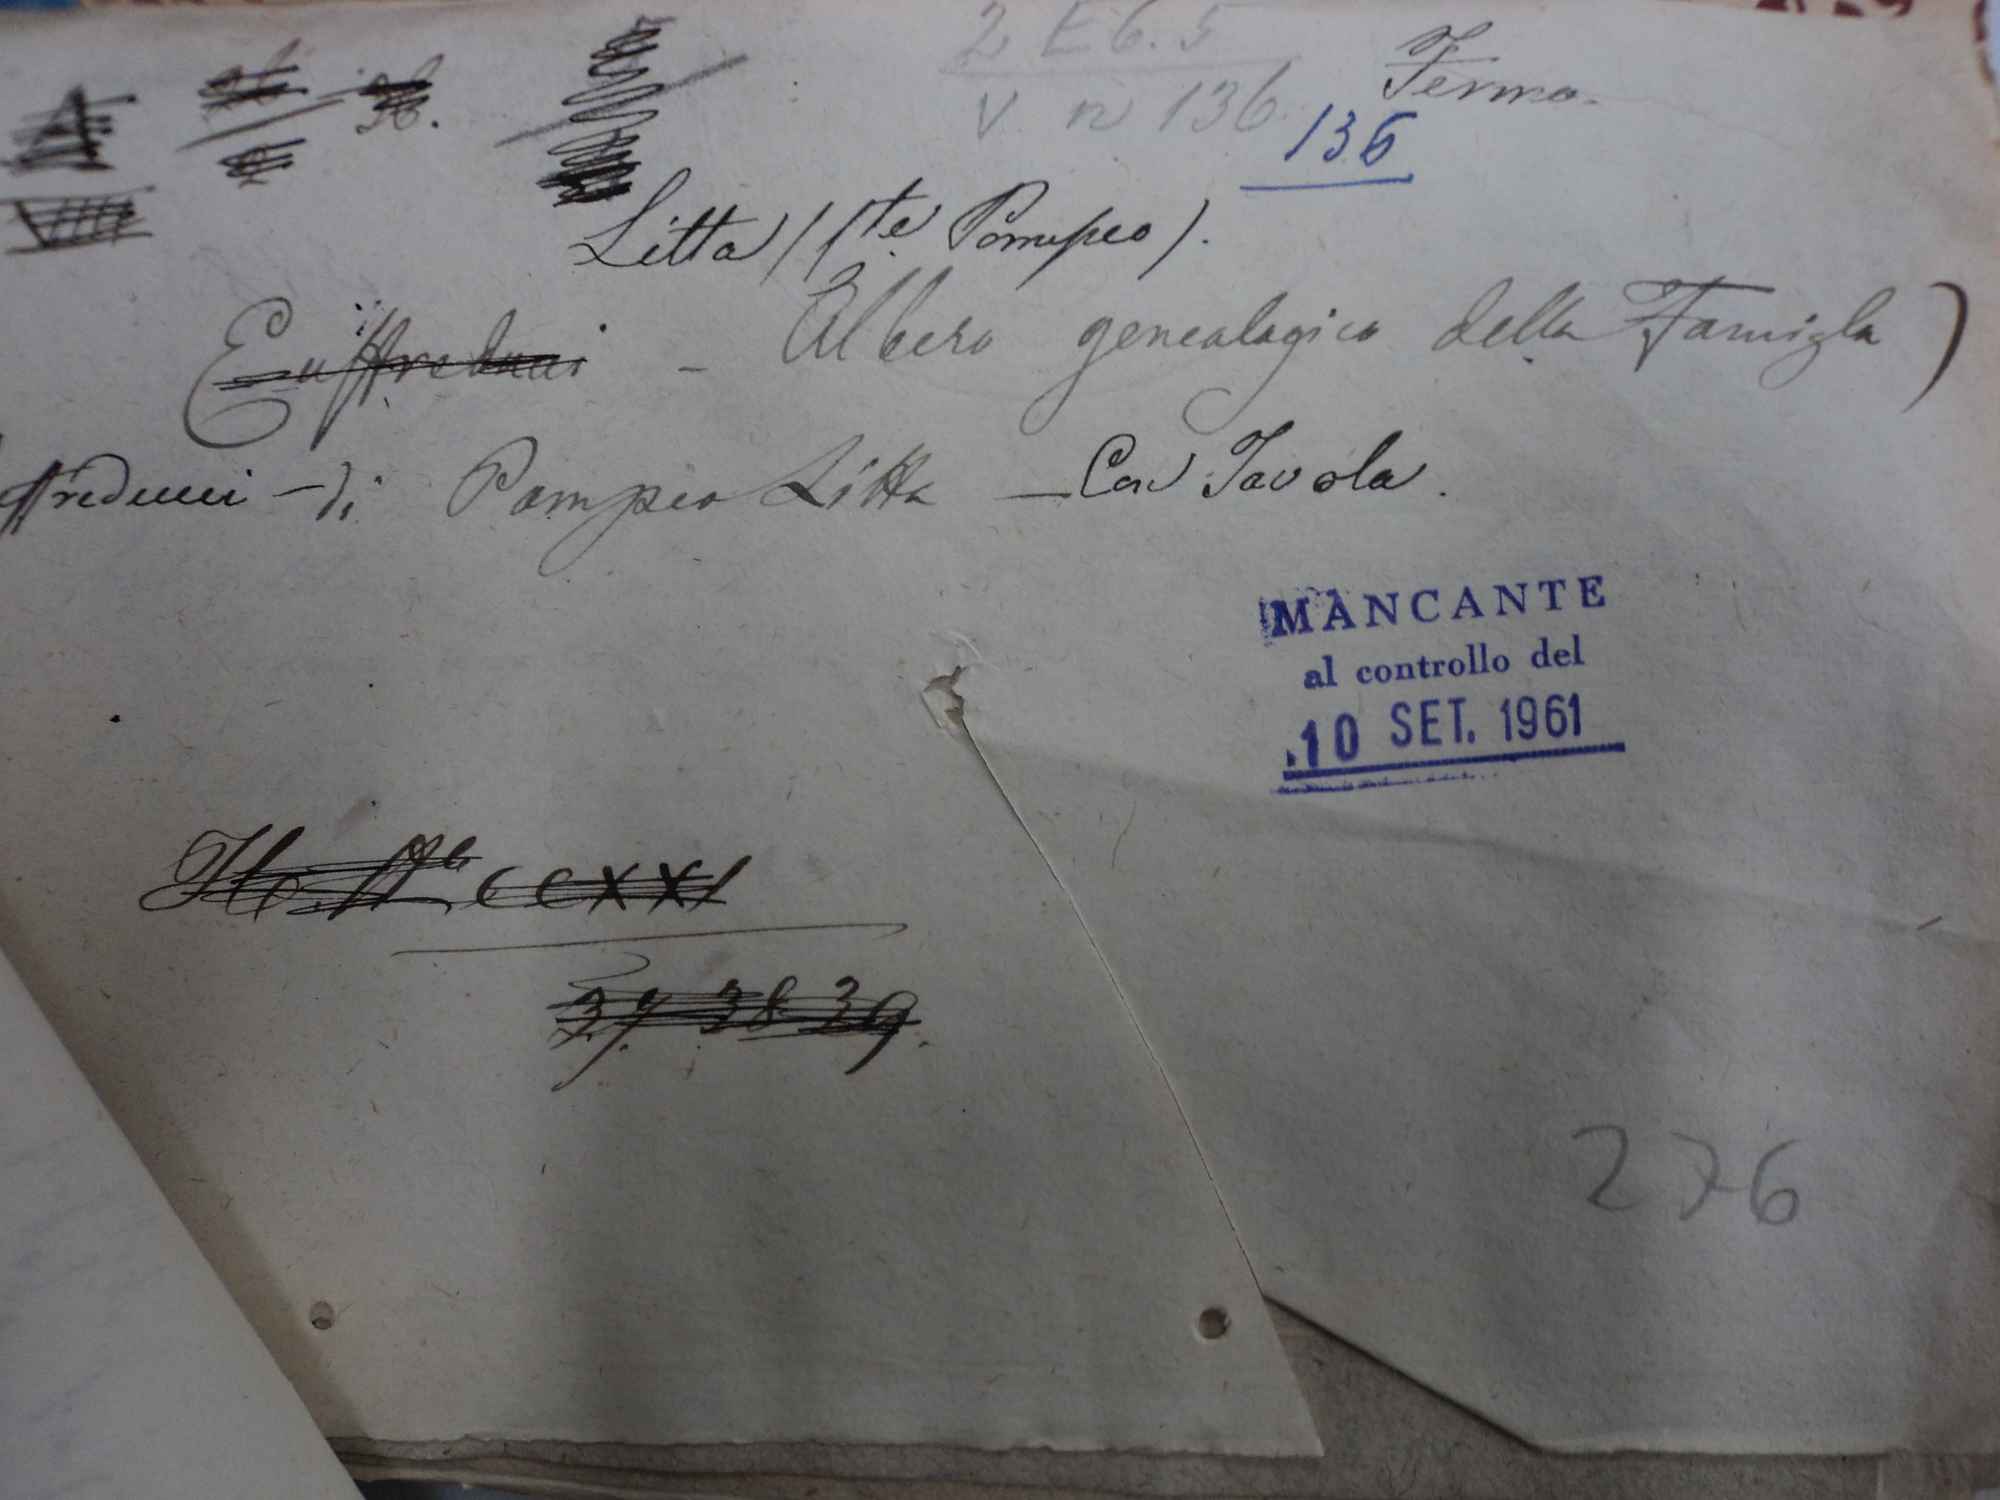 2 E 6. 5
Fermo.
V n 136
136
Litta (Cte Pompeo).
Euffreducci - Albero genealogico della Famigla
ffreducci - di Pompeo Litta - Con Tavola.
MANCANTE
al controllo del
10 SET. 1961
CCXXI
37. 38 39.
276